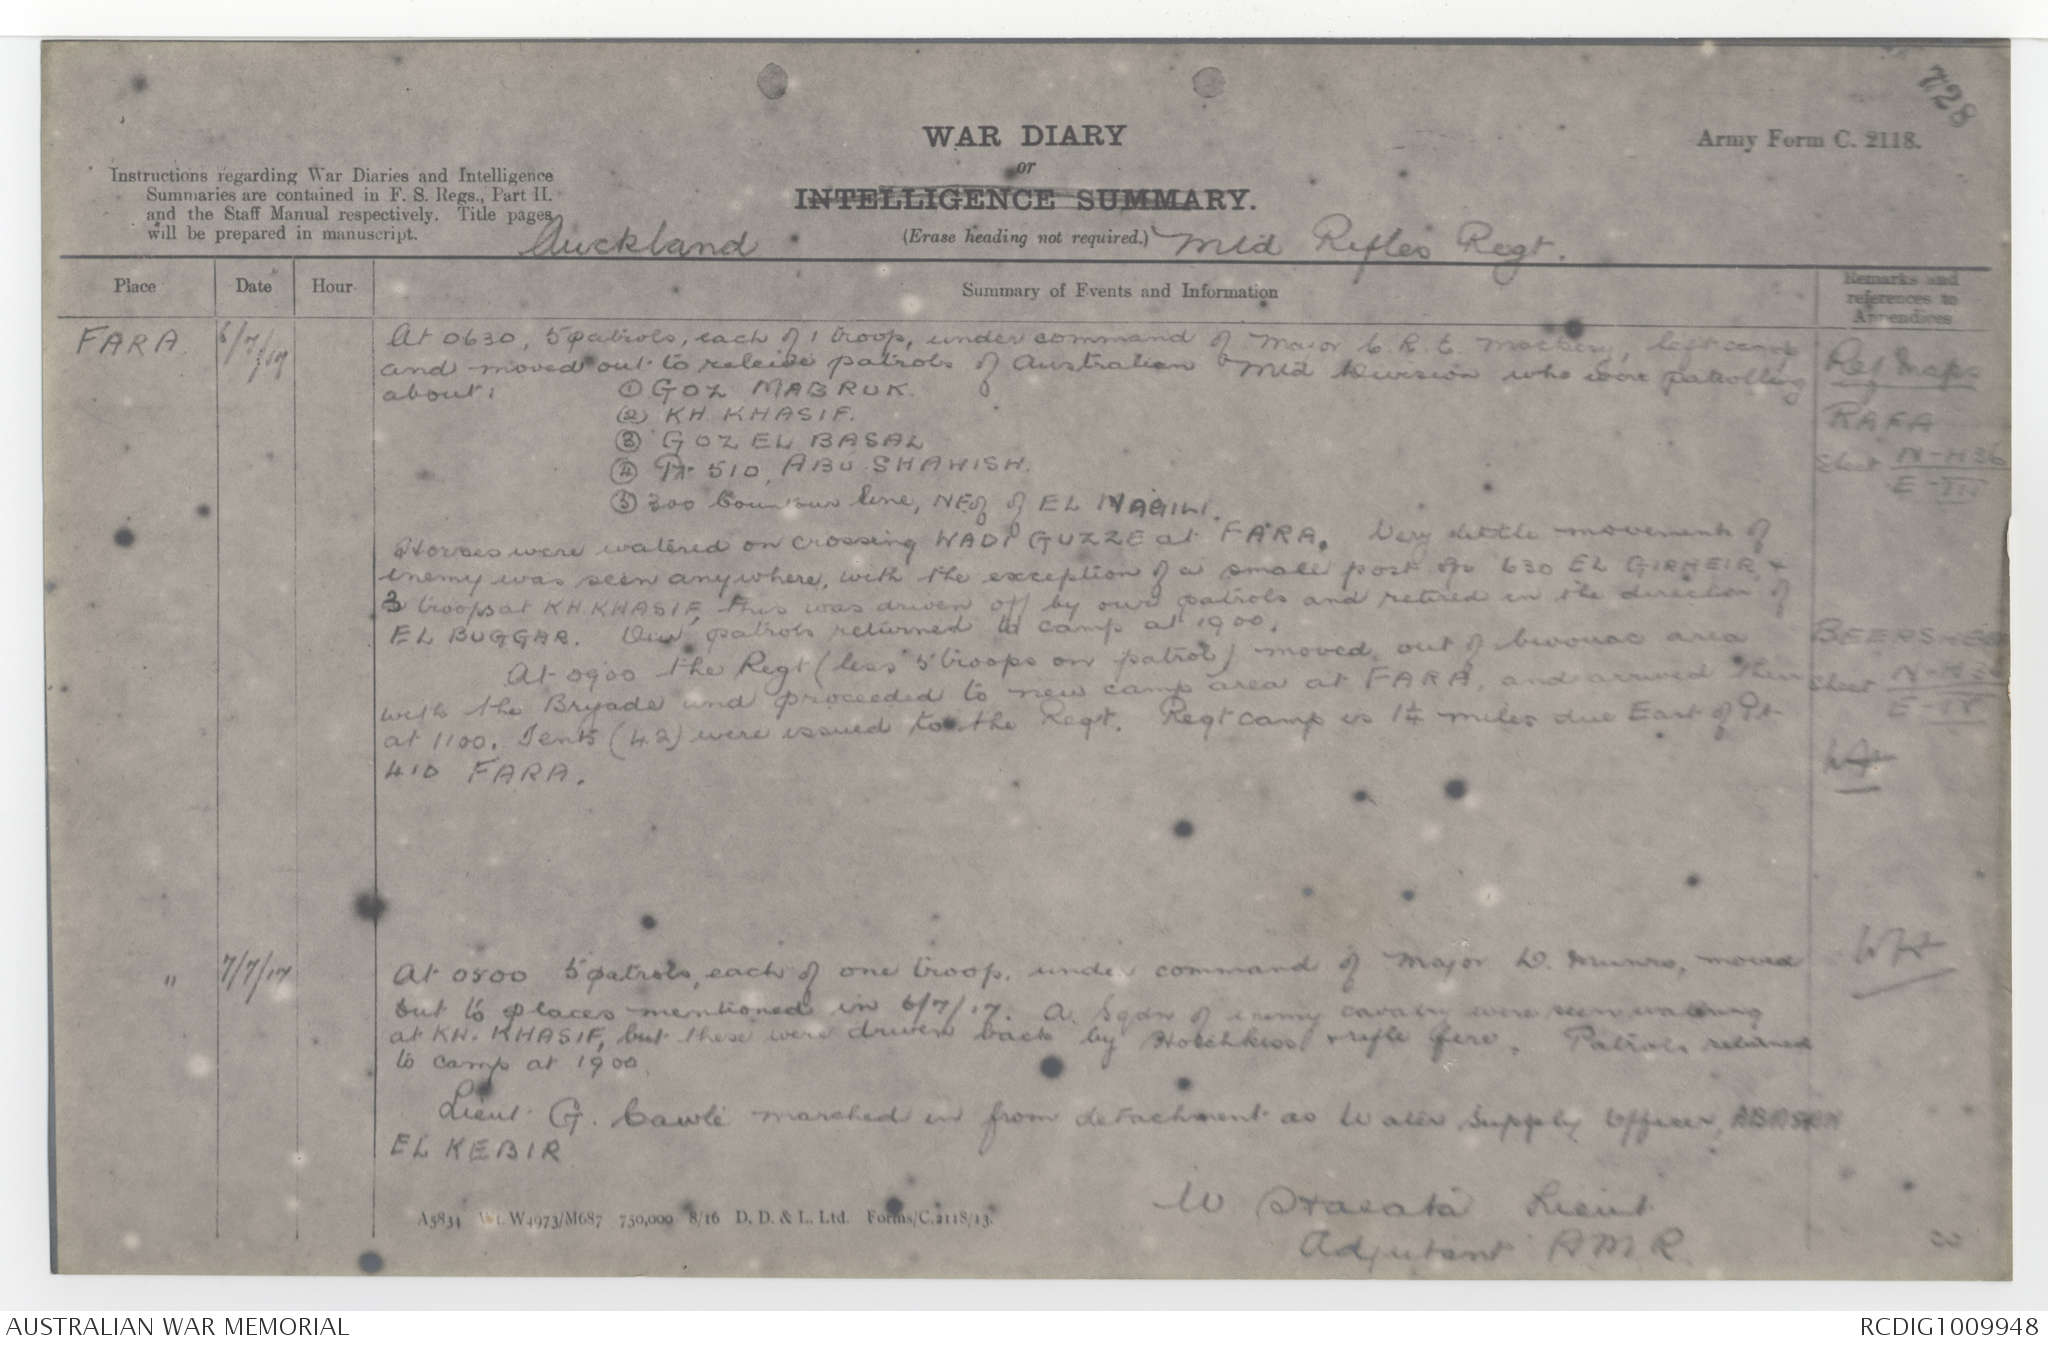 728
WAR DIARY
Army Form C. 2118.
or
INTELLIGENCE SUMMARY.
Instructions regarding War Diaries and Intelligence
Summaries are contained in F. S. Regs., Part II.
and the Staff Manual respectively. Title pages
will be prepared in manuscript.
(Erase heading not required.)
Auckland Mtd Rifles Regt.
Place Date Hour Summary of Events and Information Remarks and references to Appendices
FARA 6/7/17 At 0630, 5 patrols, each of 1 troop, under command of Major C.R.E. left camp
and moved out to releive patrols of Australian Mtd Division who were patrolling
about:
① GOZ MABRUK.
② KH KHASIF.
③ GOZ EL BASAL
④ Pt 510, ABU SHAWISH.
⑤ 300 Contour line, NE of of EL
Horses were watered on crossing WADI GUZZE at FARA. Very little movement of
enemy was seen anywhere, with the exception of a small post 630 EL GIRHEIR &
3 troops at KH. KHASIF, this was driven off by our patrols and retired in the direction of
EL BUGGAR. Our patrols returned to camp at 1900.
At 0900 the Regt (less 5 troops on patrol) moved out of bivouac area
with the Brigade and proceeded to new camp area at FARA, and arrived there
at 1100. Tents (42) were issued to the Regt. Regt camp is 1¼ miles due East of Pt
410 FARA.
Ref Maps
RAFA
Sheet N-H36
E-III
BEERSHEBA
Sheet N-H36
E-IV
" 7/7/17 At 0500 5 patrols, each of one troop, under command of Major D. Munro, moved
out to places mentioned in 6/7/17. A Sqdn of enemy cavalry were seen watering
at KH. KHASIF, but these were driven back by Hotchkiss & rifle fire. Patrols returned
to camp at 1900.
Lieut G. Cawle marched in from detachment as Water Supply Officer,
EL KEBIR
W Lieut
Adjutant AMR
A5834 Wt. W4973/M687 750,000 8/16 D. D. & L. Ltd. Forms/C.2118/13.
AUSTRALIAN WAR MEMORIAL
RCDIG1009948